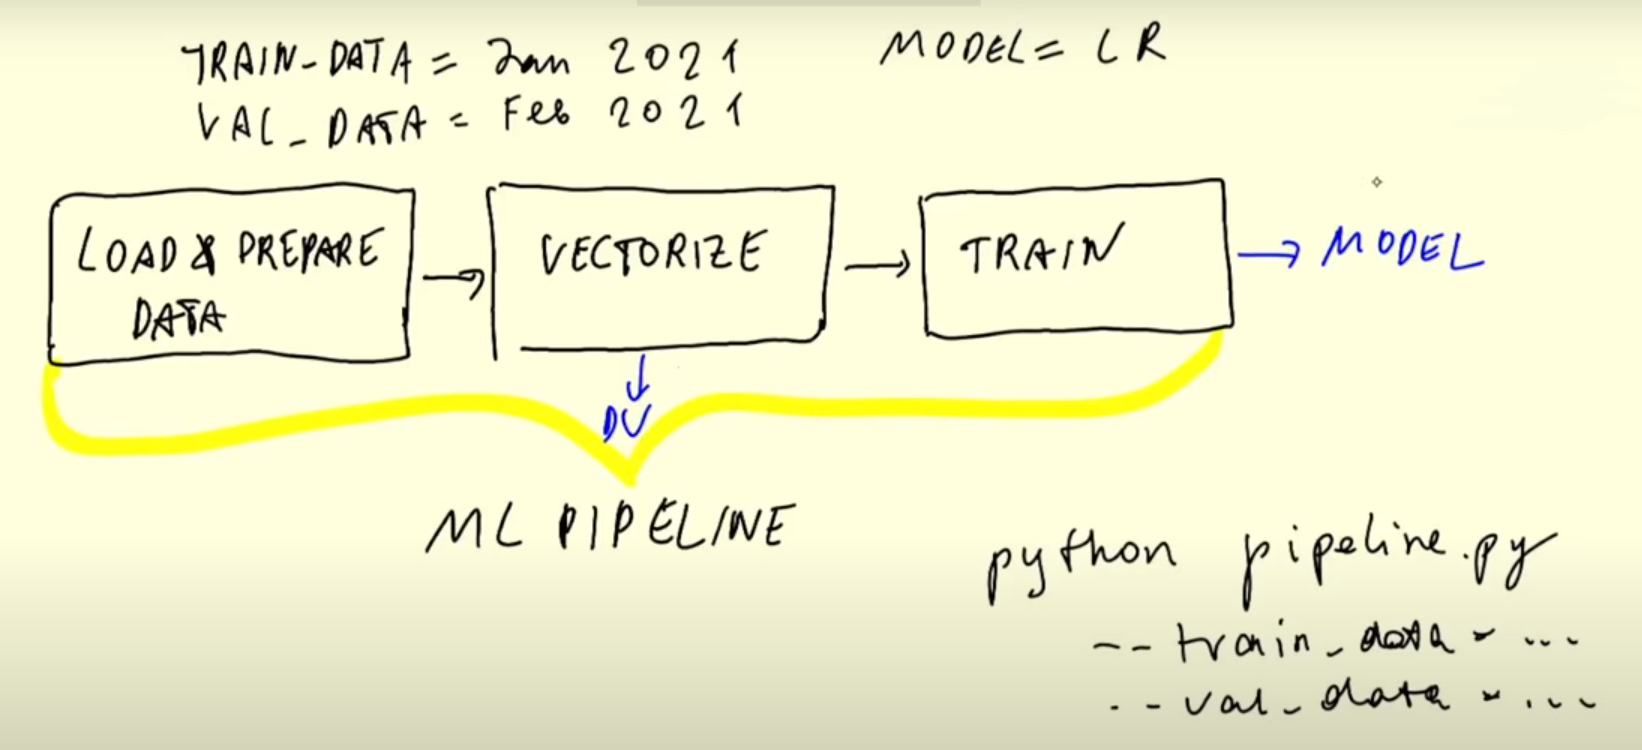 TRAIN_DATA = Jan 2021
VAL_DATA = Feb 2021
MODEL = LR
LOAD & PREPARE
DATA
VECTORIZE
TRAIN
MODEL
DV
ML PIPELINE
python pipeline.py
--train_data = ...
--val_data = ...